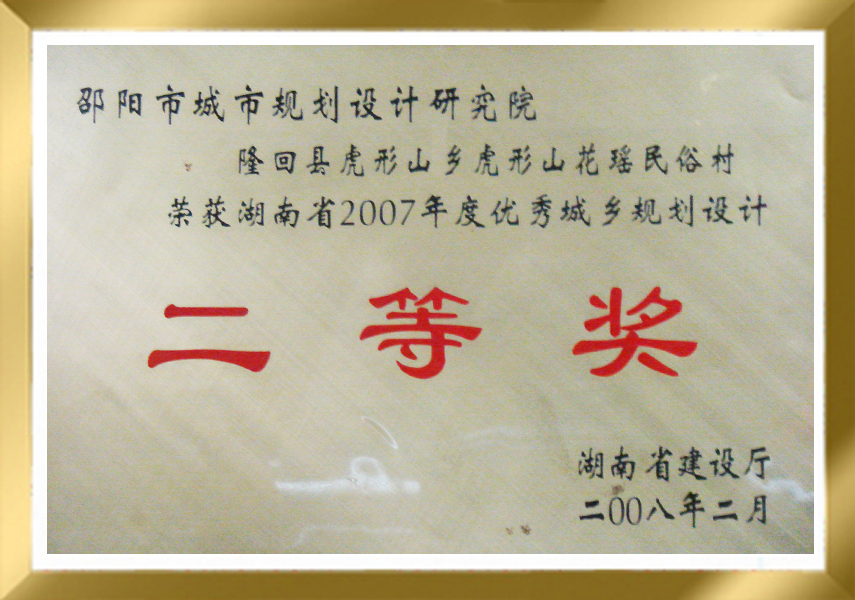 邵阳市城市规划设计研究院
隆回县虎形山乡虎形山花瑶民俗村
荣获湖南省2007年度优秀城乡规划设计
二等奖
湖南省建设厅
二00八年二月